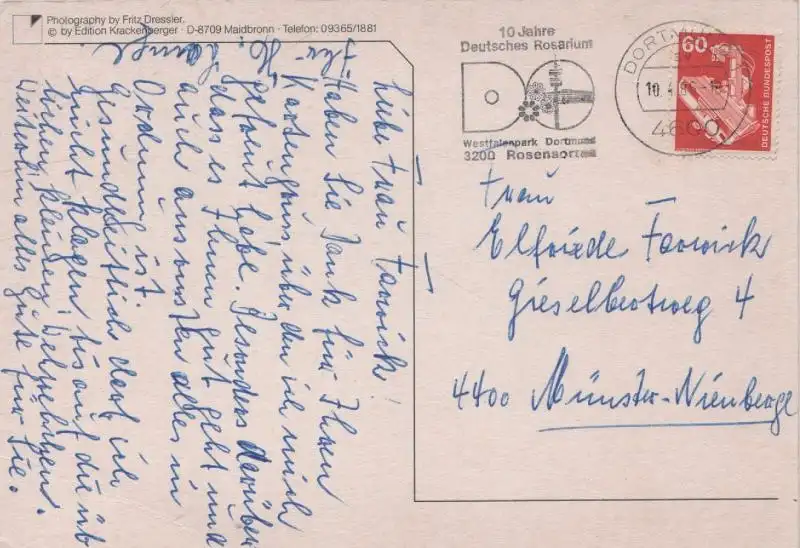 Photography by Fritz Dressler,
© by Edition Krackenberger · D-8709 Maidbronn · Telefon: 09365/1881
10 Jahre
Deutsches Rosarium
Westfalenpark Dortmund
3200 Rosensorten
DORTMUND
10.
4600
60
DEUTSCHE BUNDESPOST
Frau
Elfriede Farwick
Gieselbertweg 4
4400 Münster-Nienberge
Liebe Frau Farwick!
Haben Sie Dank für Ihren
Kartengruss über den ich mich
gefreut habe. Besonders darüber
dass es Ihnen gut geht und
auch ansonsten alles in
Ordnung ist.
Gesundheitlich darf ich
nicht klagen bis auf die üb
lichen kleinen Wehwehchen.
Weiterhin alles Gute für Sie.
Ihr